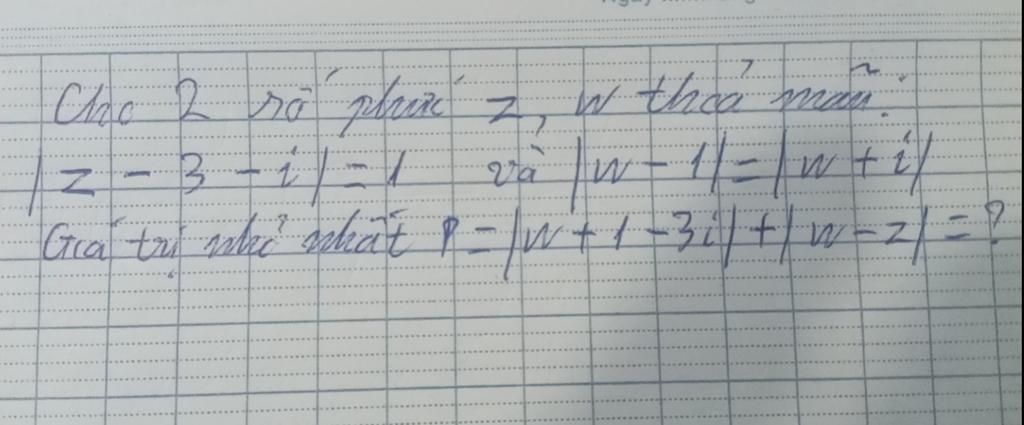 Cho 2 số phức z, w thỏa mãn:
|z - 3 - i| = 1 và |w - 1| = |w + i|
Giá trị nhỏ nhất P = |w + 1 - 3i| + |w - z| = ?